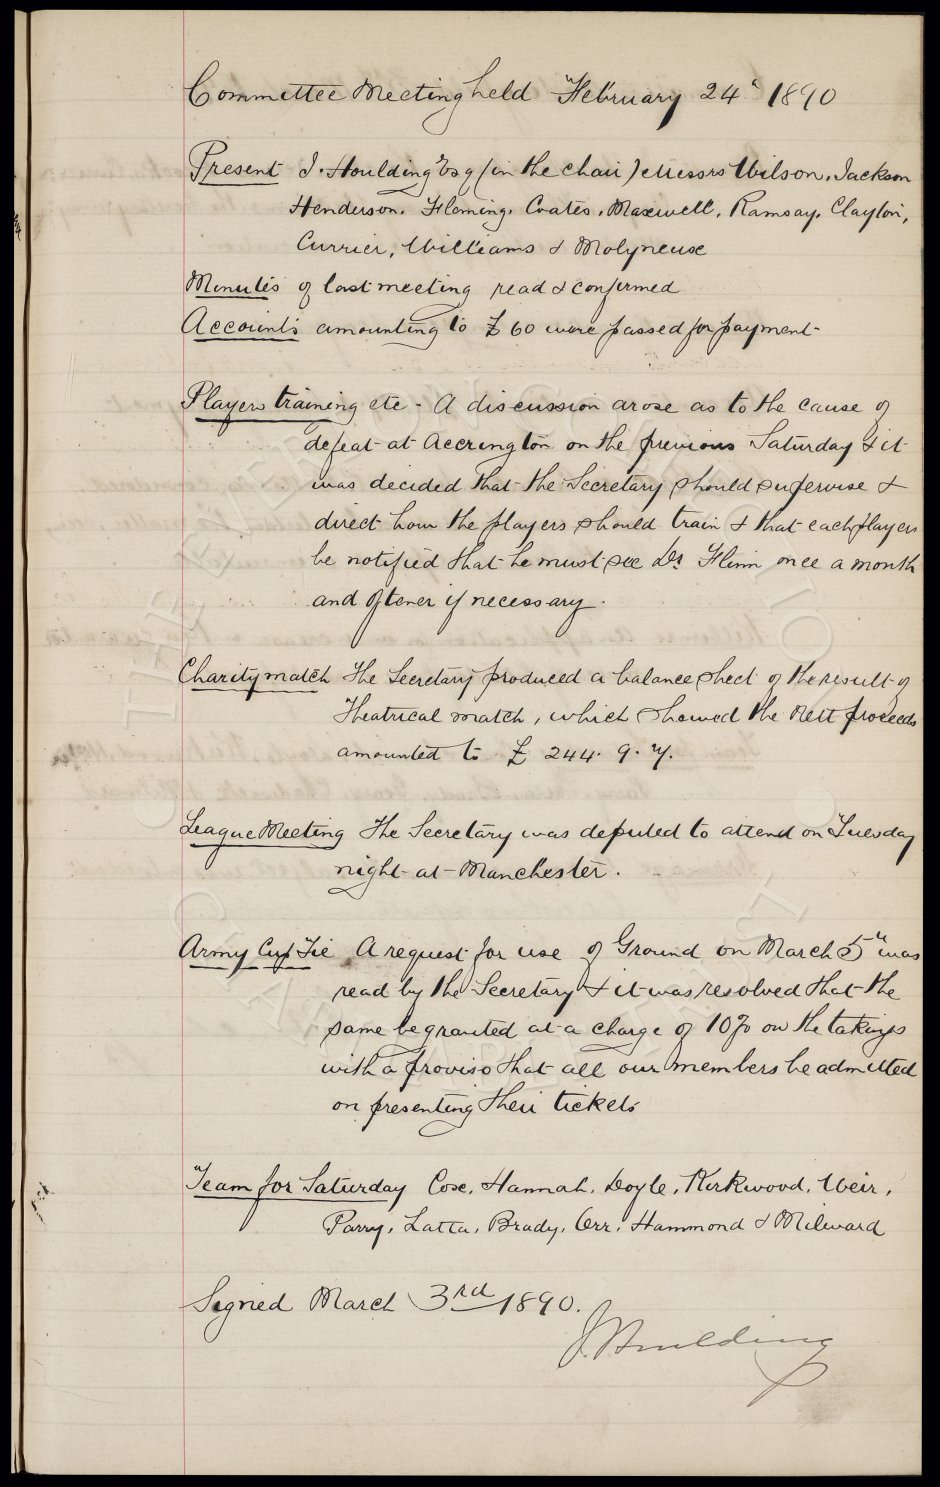 Committee Meeting held February 24th 1890
Present J. Houlding Esq (in the chair) Messrs Wilson, Jackson
Henderson, Fleming, Coates, Maxwell, Ramsay, Clayton,
Currier, Williams & Molyneux
Minutes of last meeting read & confirmed
Accounts amounting to £60 were passed for payment
Players training etc - A discussion arose as to the cause of
defeat at Accrington on the previous Saturday & it
was decided that the Secretary should supervise &
direct how the players should train & that each players
be notified that he must see Dr Flinn once a month
and oftener if necessary.
Charity match The Secretary produced a balance sheet of the result of
Theatrical match, which showed the Nett proceeds
amounted to £244. 9. 7.
League Meeting The Secretary was deputed to attend on Tuesday
night at Manchester.
Army Cup Tie A request for use of Ground on March 5th was
read by the Secretary & it was resolved that the
same be granted at a charge of 10% on the takings
with a proviso that all our members be admitted
on presenting their tickets
Team for Saturday Cox, Hannah, Doyle, Kirkwood, Weir,
Parry, Latta, Brady, Orr, Hammond & Milward
Signed March 3rd 1890.
J. Houlding
THE EVERTON COLLECTION
CHARITABLE TRUST